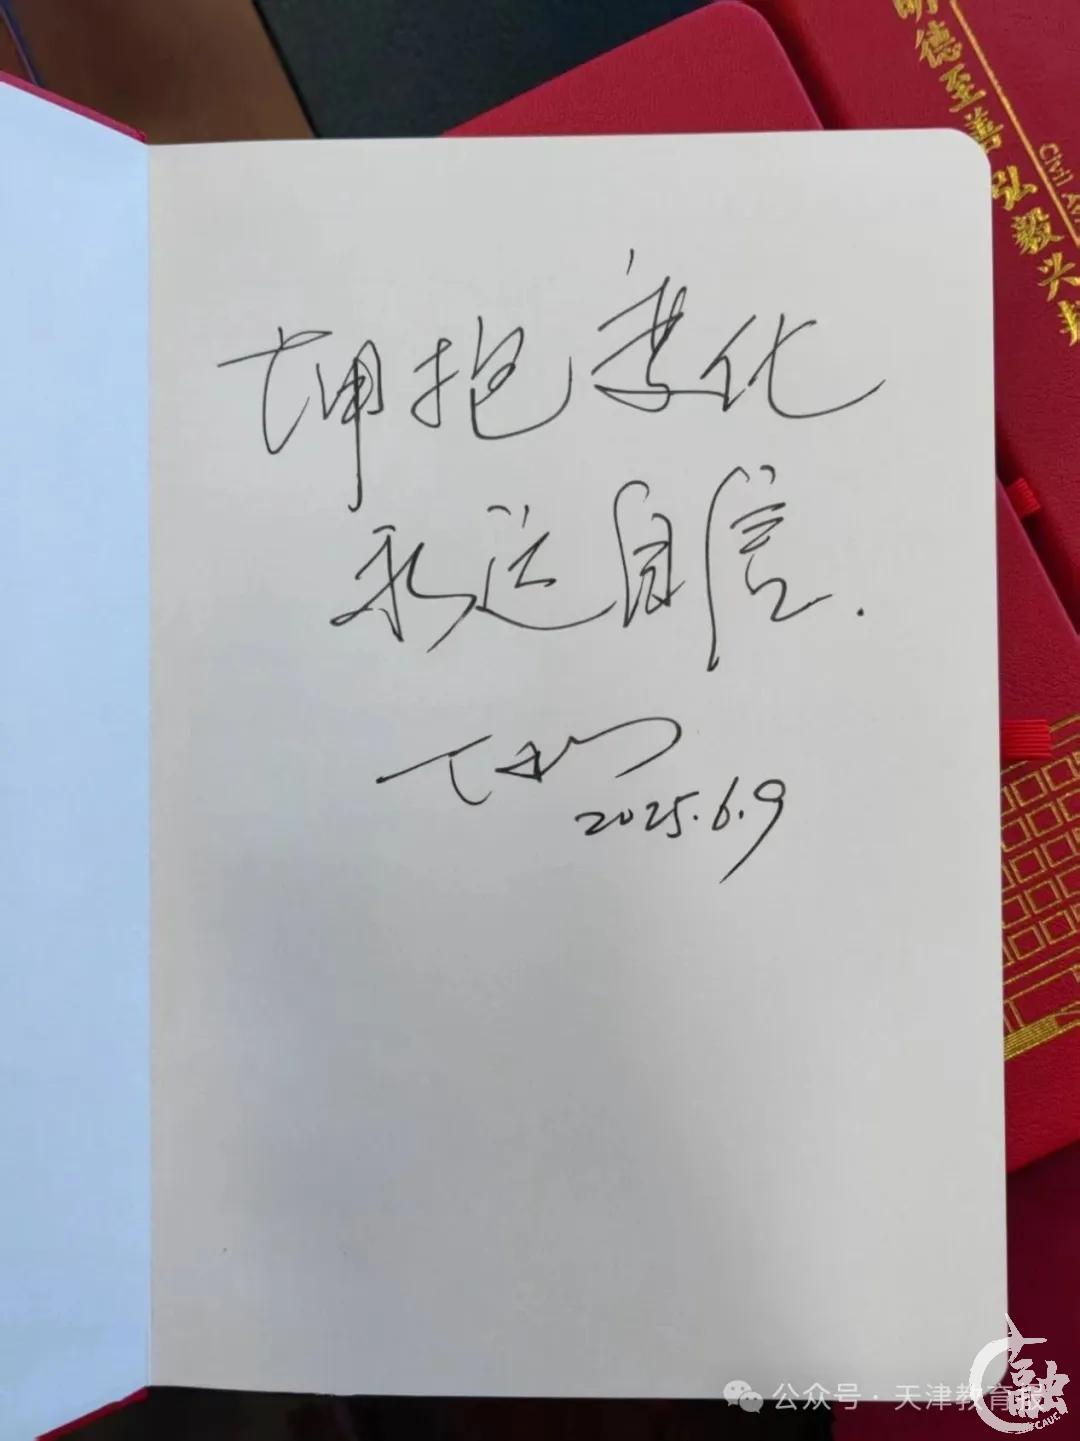 明德至善弘毅兴
Civil
拥抱变化
永远自信.
2025.6.9
公众号 · 天津教育报
融
CAUC